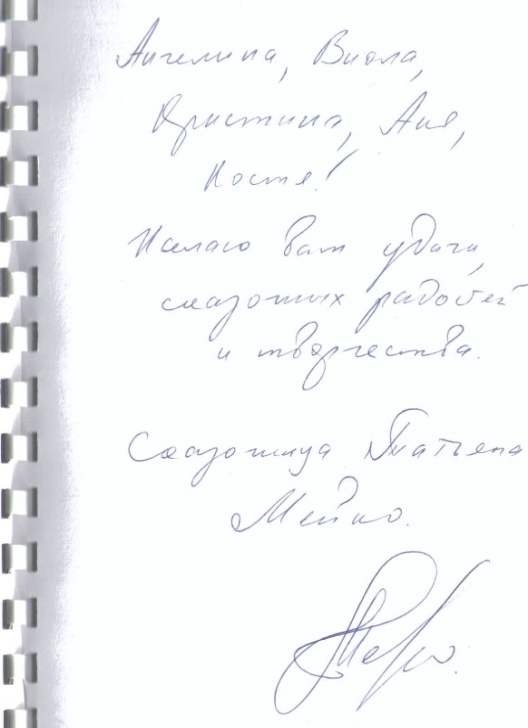 Ангелина, Виола,
Кристина, Аня,
Костя!
Желаю вам удачи,
сказочных радостей
и творчества.
Сказочница Татьяна
Мейко.